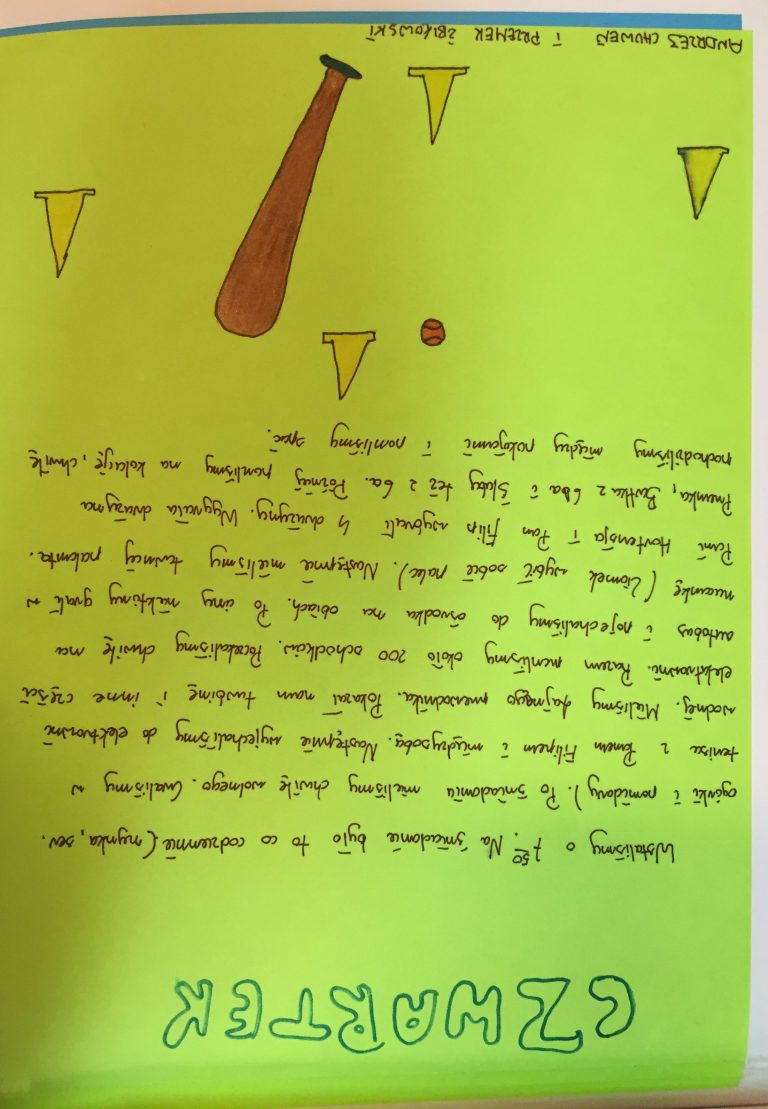 CZWARTEK
Wstaliśmy o 7⁵⁰. Na śniadanie było to co codziennie (szynka, ser,
ogórki i pomidory). Po śniadaniu mieliśmy chwilę wolnego. Graliśmy w
tenisa z Panem Filipem i między sobą. Następnie wyjechaliśmy do elektrowni
wodnej. Mieliśmy fajnego przewodnika. Pokazał nam turbinę i inne części
elektrowni. Razem menliśmy około 200 schodków. Poczekaliśmy chwilę na
autobus i pojechaliśmy do ośrodka na obiad. Po inny niektórzy grali w
nucankę (Ziomek wybił sobie palec). Następnie mieliśmy turniej palanta.
Pani Hortensja i Pan Filip wybrali 4 drużyny. Wygrała drużyna
Przemka, Bartka z 6a i Słaby też z 6a. Później poszliśmy na kolację, chwilę
pochodziliśmy między pokojami i poszliśmy spać.
ANDRZEJ CHUWEŃ i PRZEMEK ŻBIKOWSKI